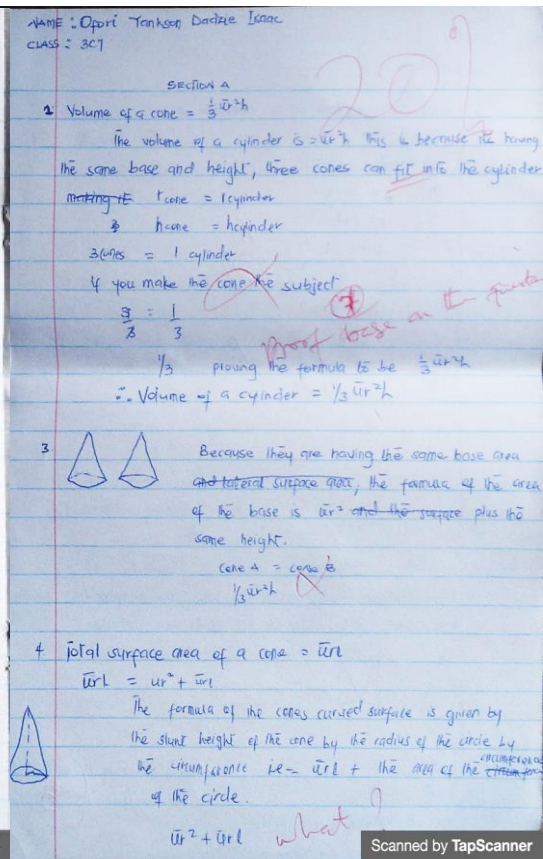 NAME : Ofori Yankson Dadzie Isaac
CLASS : 3C7
20%
SECTION A
1 Volume of a cone = 1/3 πr²h
The volume of a cyinder is = πr²h this is because its having
the same base and height, three cones can fit into the cylinder
making it r cone = r cyinder
h cone = h cyinder
3 cones = 1 cylinder
if you make the cone the subject
3/3 = 1/3
Proof base on the
1/3 proving the formula to be 1/3 πr²h
∴ Volume of a cyinder = 1/3 πr²h
3 Because they are having the same base area
and lateral surface area, the formula of the area
of the base is πr² and the surface plus the
same height.
cone A = cone B
1/3 πr²h
4 Total surface area of a cone = πrl
πrl = πr² + πrl
The formula of the cones curved surface is given by
the slunt height of the cone by the radius of the circle by
the circumference i.e = πrl + the area of the circumference
of the circle.
πr² + πrl what?
Scanned by TapScanner